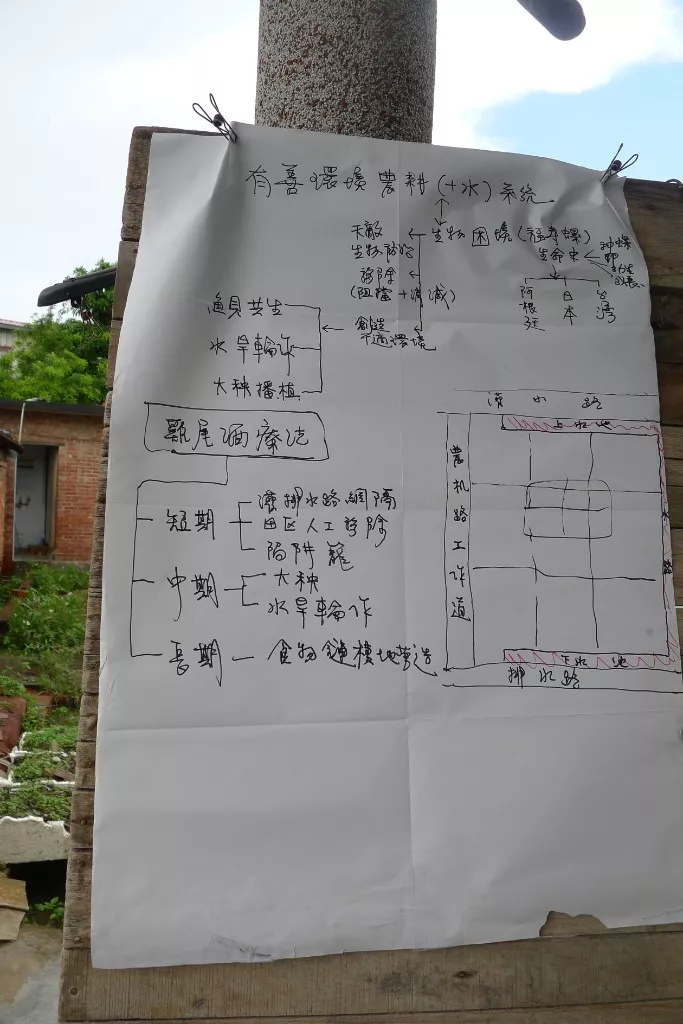 有善環境農耕(+水)系統
生物困境(福壽螺)
天敵
生物防治
移除
(阻擋+清減)
創造
不適環境
生命史
卵
阿根廷
日本
台灣
魚貝共生
水旱輪作
大秧播植
雞尾酒療法
短期
灌排水路網隔
田区人工移除
陷阱籠
中期
大秧
水旱輪作
長期
食物鏈棲地營造
水路
上水池
農机路工作道
水路
下水池
排水路